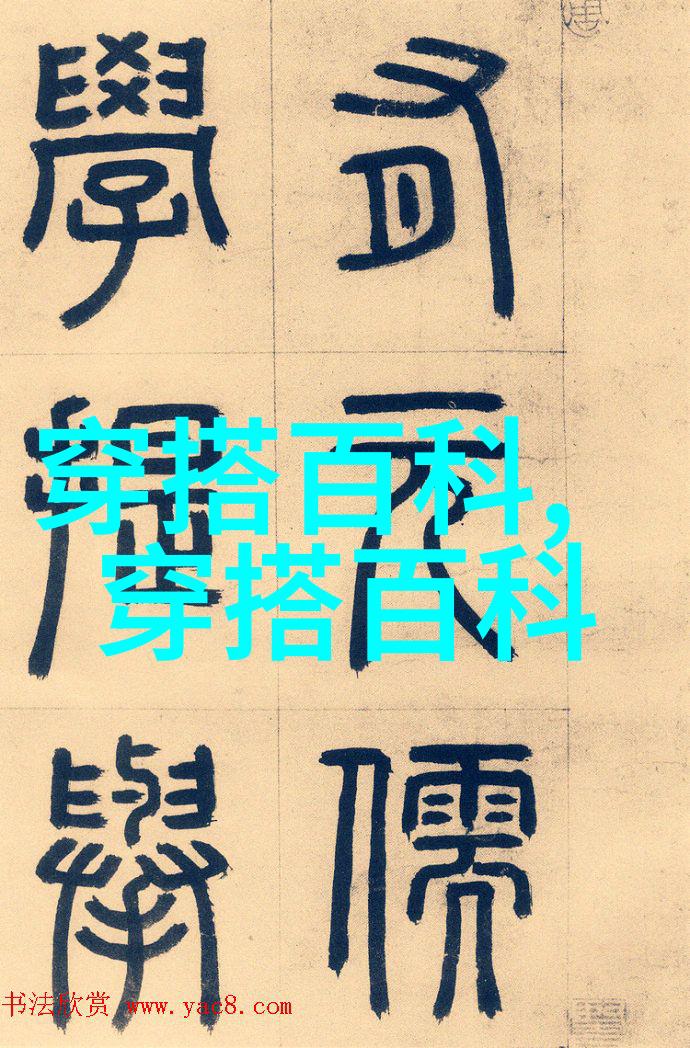 有元儒
學提舉
穿搭百科,
穿搭百科
书法欣赏 www.yac8.com